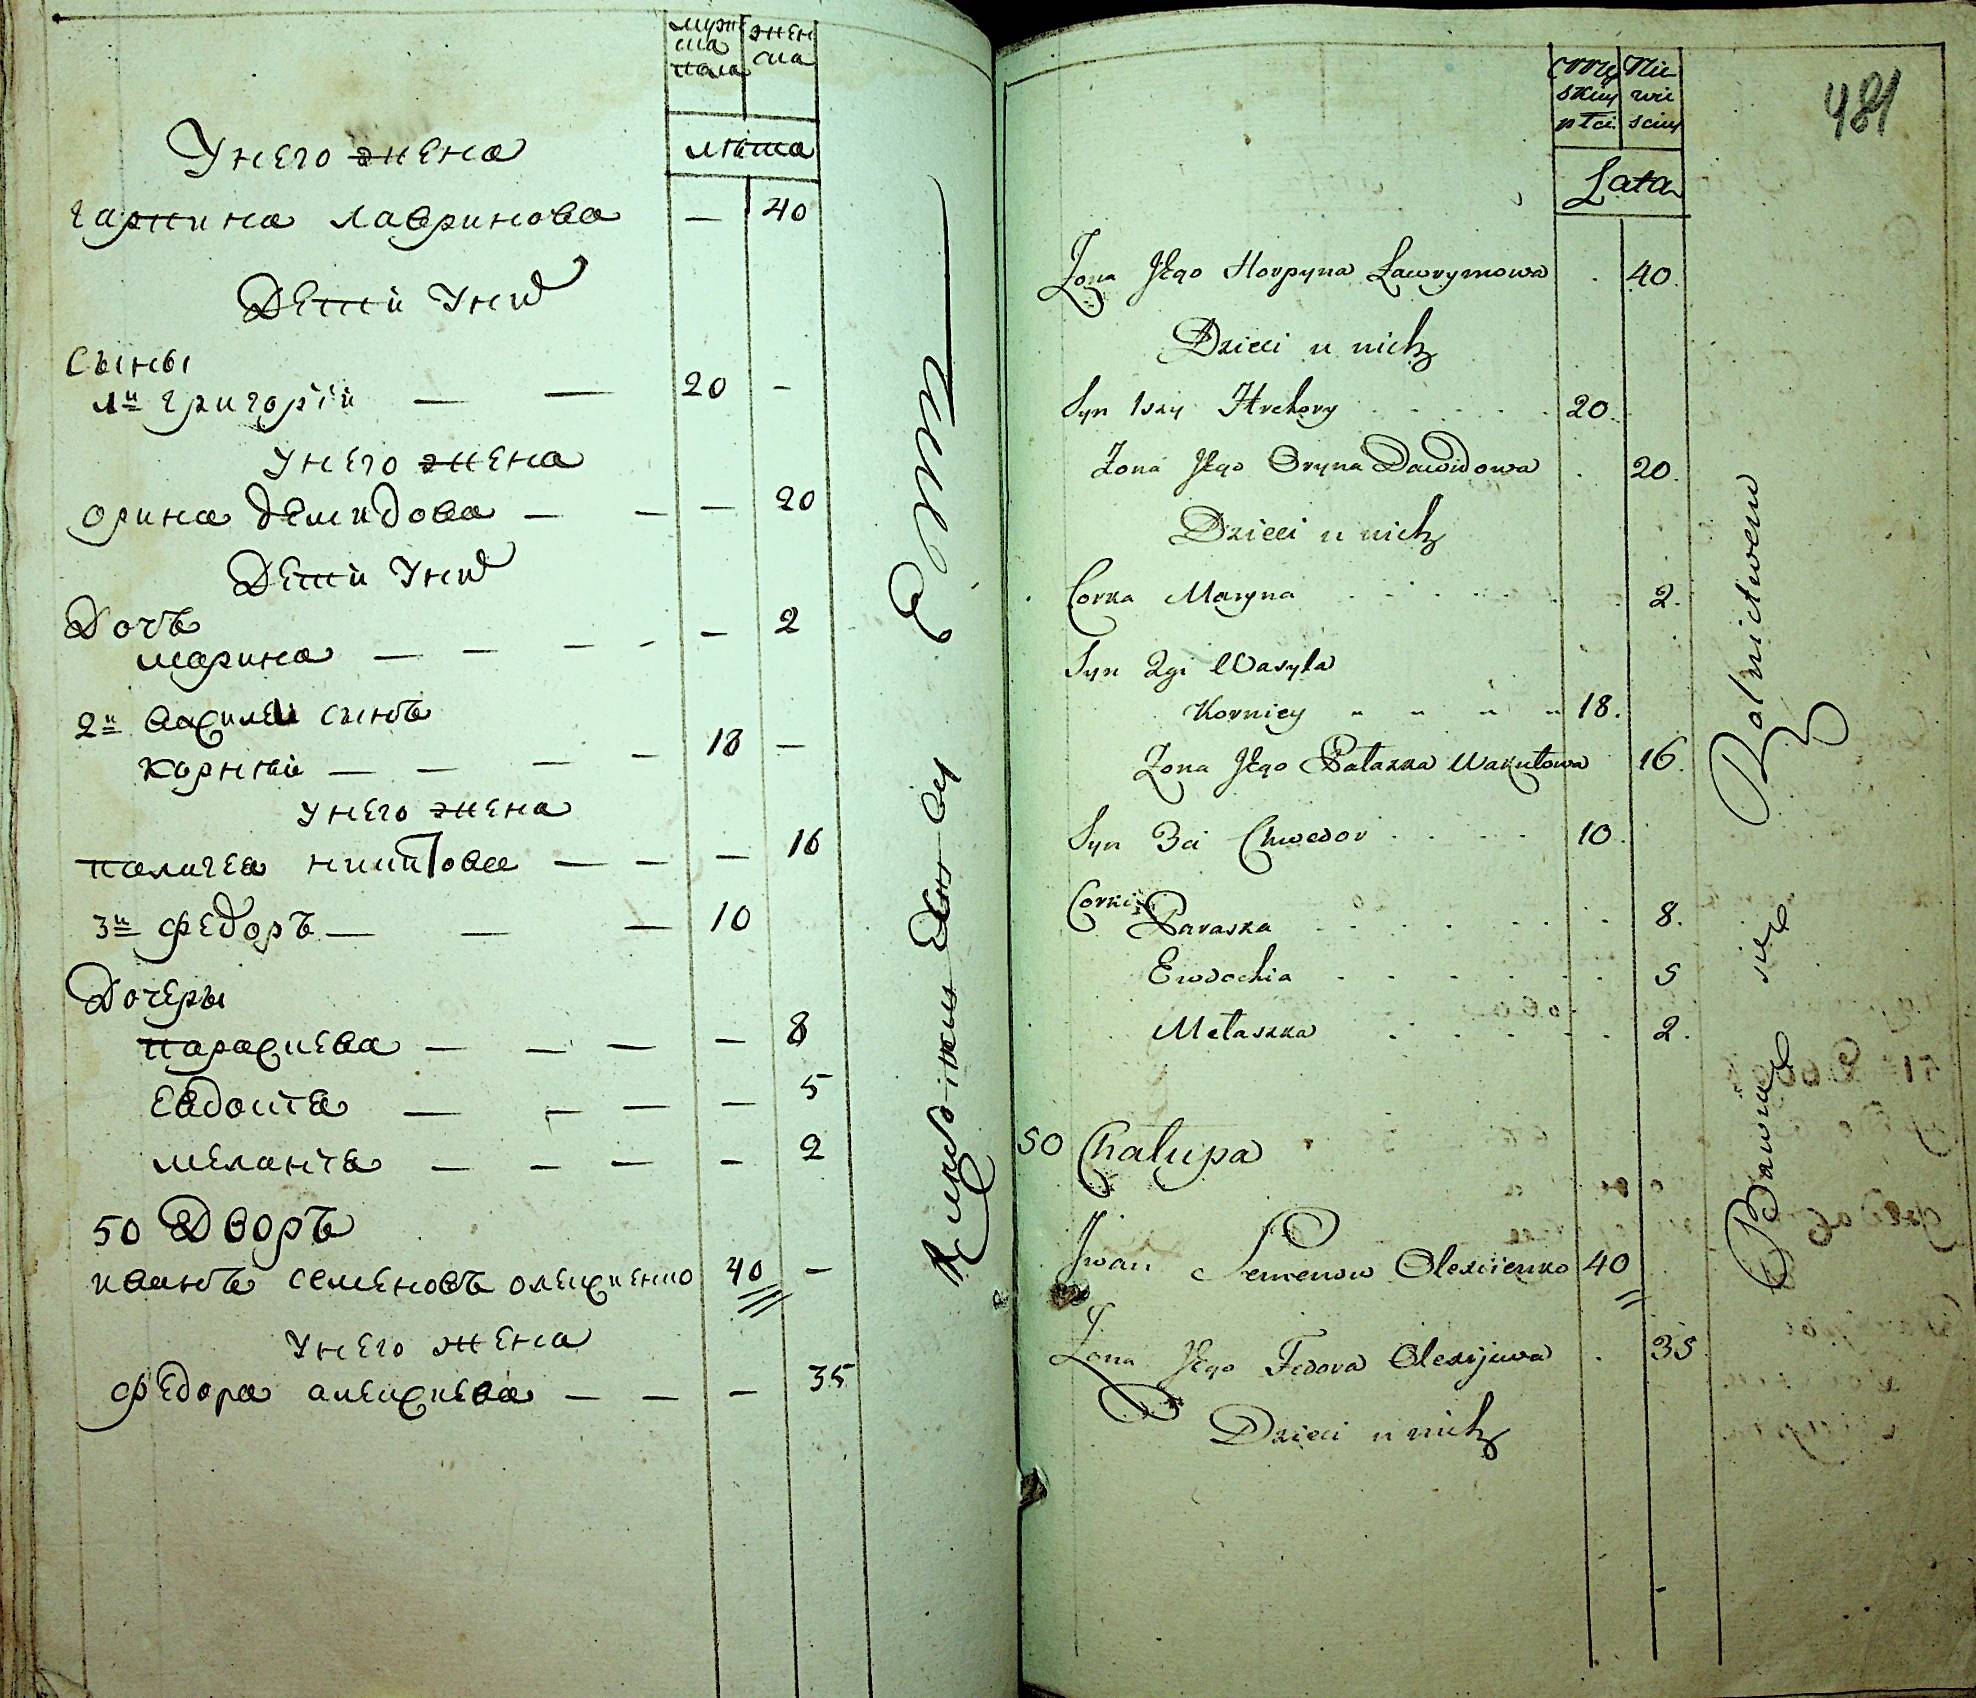 мужска пола
женска
лѣта
У него жена
гарпина лавринова — 40
Дети у нихъ
Сыны
1й григорій — — 20 —
У него жена
орина демидова — — — 20
Дети у нихъ
Дочь
марина — — — — — 2
2й василей сынъ
корній — — — — 18 —
У него жена
пологея никитова — — — 16
3й федоръ — — — 10
Дочеры
параскева — — — — 8
евдокія — — — — 5
меланія — — — — 2
50 Дворъ
иванъ семеновъ олексиенко 40 —
У него жена
федора алексиева — — — 35
481
Męzkiey płci
Niewiesciey
Lata
Zona Jego Horpyna Ławrynowa . 40.
Dzieci u nich
Syn 1szy Hrehory . . . . . 20.
Zona Jego Oryna Dawidowa . 20.
Dzieci u nich
Corka Maryna . . . . . 2.
Syn 2gi Wasyla
Korniey " " " " 18.
Zona Jego Pałazka Wakułowa 16.
Syn 3ci Chwedor . . . . 10.
Corki
Paraska . . . . . . 8.
Ewdochia . . . . . . 5
Mełaszka . . . . . 2.
50 Chałupa
Jwan Semenow Olexiienko 40
Zona Jego Fedora Olexijewa . 35
Dzieci u nich
Bawią się Rolnictwem